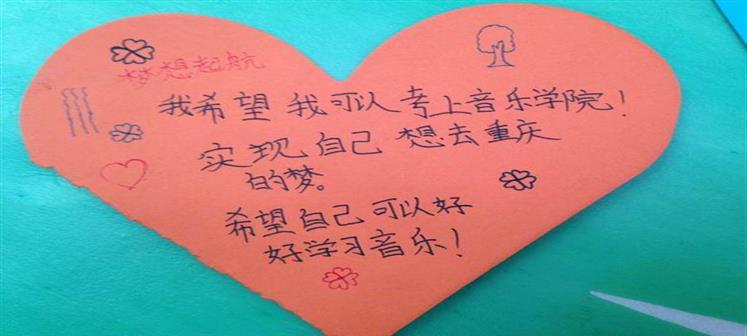 梦想起航
我希望我可以考上音乐学院！
实现自己想去重庆
的梦。
希望自己可以好
好学习音乐！